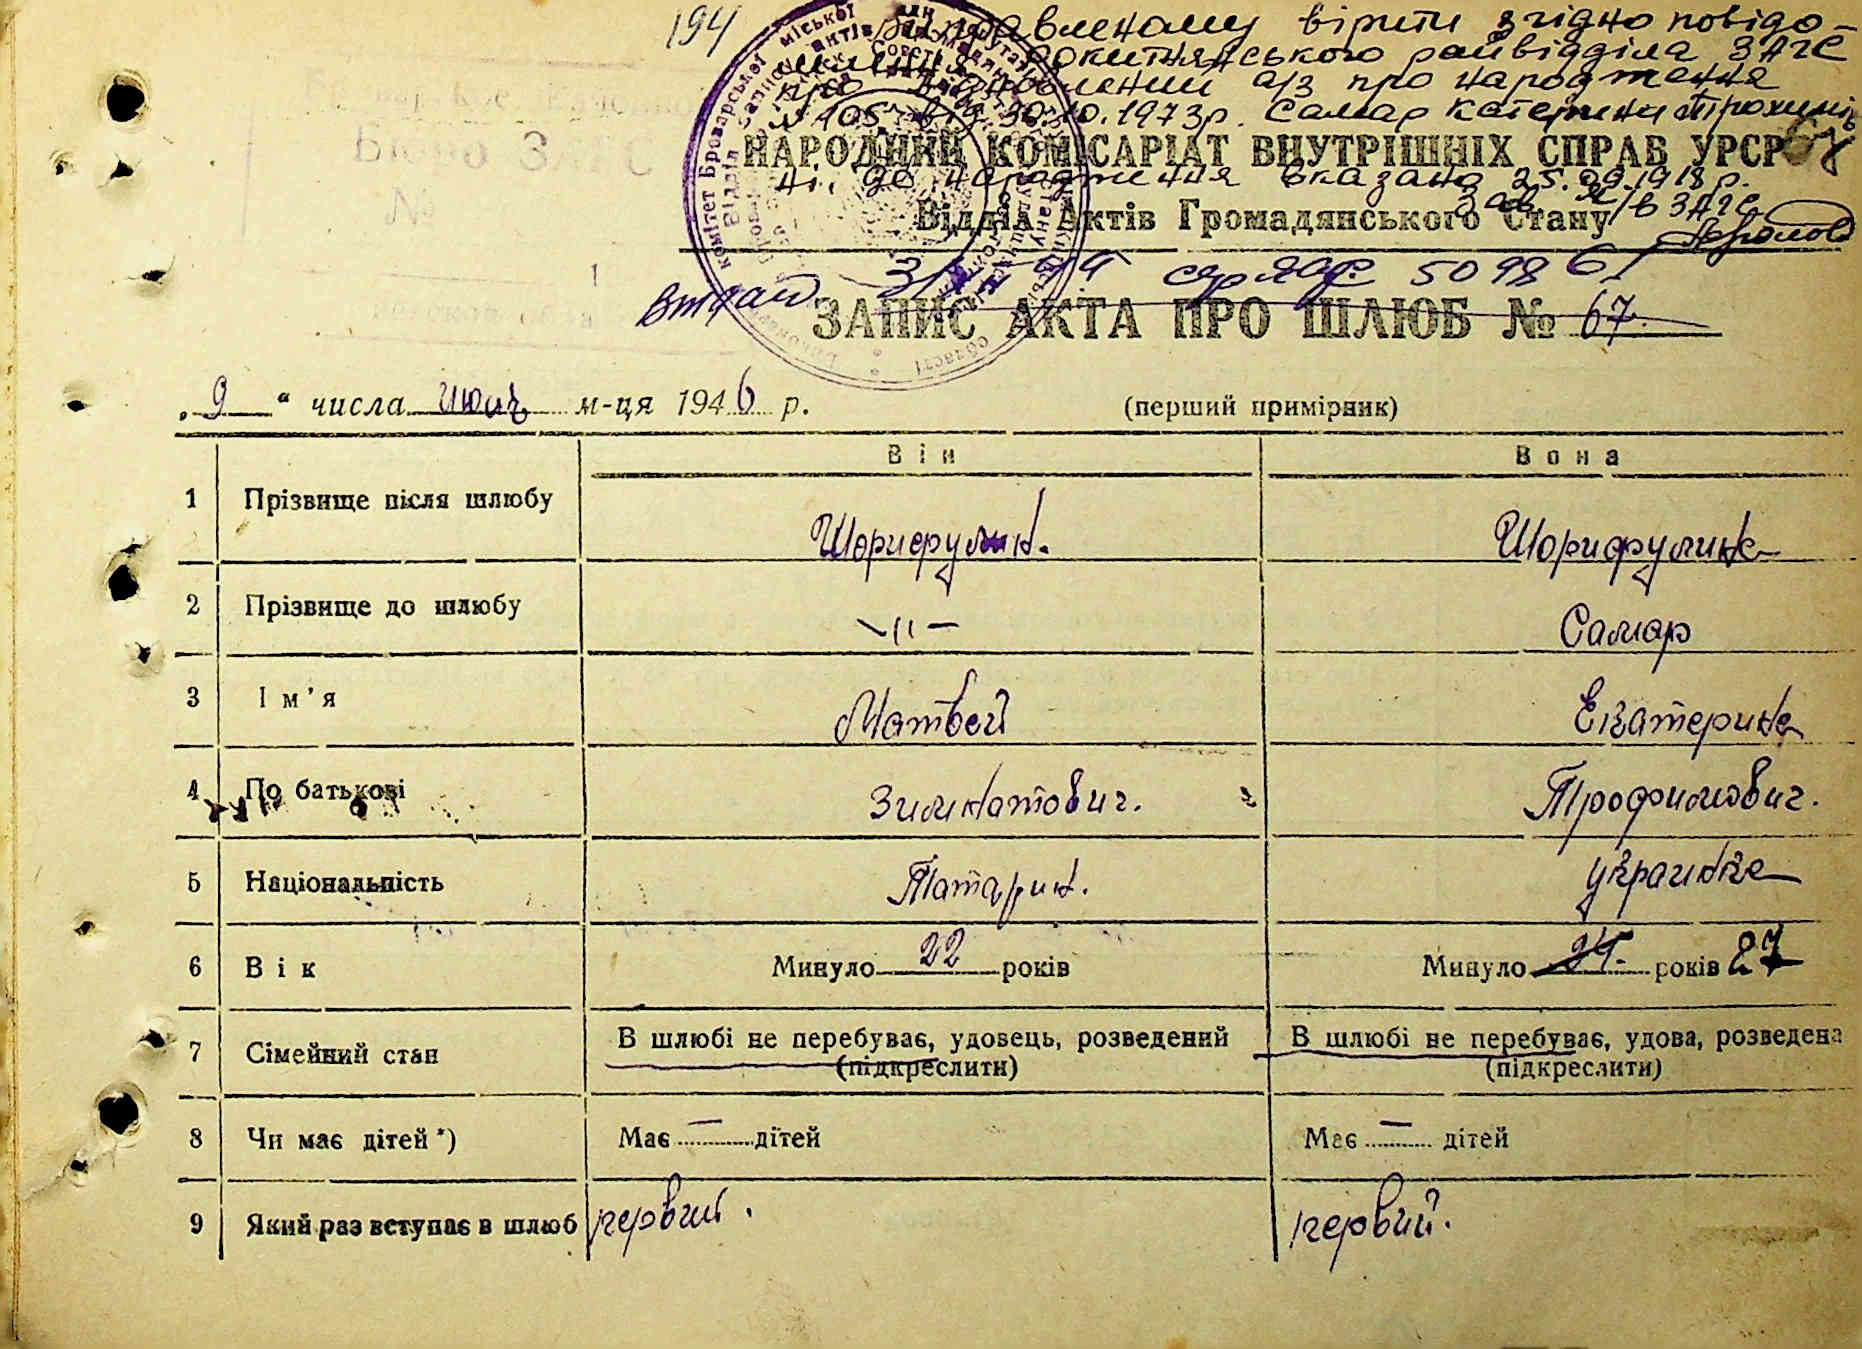 194 Виправленому вірити згідно повідо-
млення Рокитнянського райвідділа ЗАГС
про відновлений а/з про народження
№ 105 від 30.10.1973р. Самар Катерини Трохимів-
НАРОДНИЙ КОМІСАРІАТ ВНУТРІШНІХ СПРАВ УРСР 67
ні. де народження вказано 25.09.1918р.
Зав. м/в ЗАГС
Відділ Актів Громадянського Стану
50 98 61
ЗАПИС АКТА ПРО ШЛЮБ № 67.
„ 9 “ числа июля м-ця 1946 р. (перший примірник)
Він Вона
1 Прізвище після шлюбу Шорифулин. Шорифулина
2 Прізвище до шлюбу –〃– Самар
3 Ім’я Матвей Екатерина
4 По батькові Зимнатович. Трофимович.
5 Національність Татарин. украинка
6 Вік Минуло 22 років Минуло 24 років 27
7 Сімейний стан В шлюбі не перебуває, удовець, розведений (підкреслити) В шлюбі не перебуває, удова, розведена (підкреслити)
8 Чи має дітей *) Має — дітей Має — дітей
9 Який раз вступає в шлюб первий. первий.